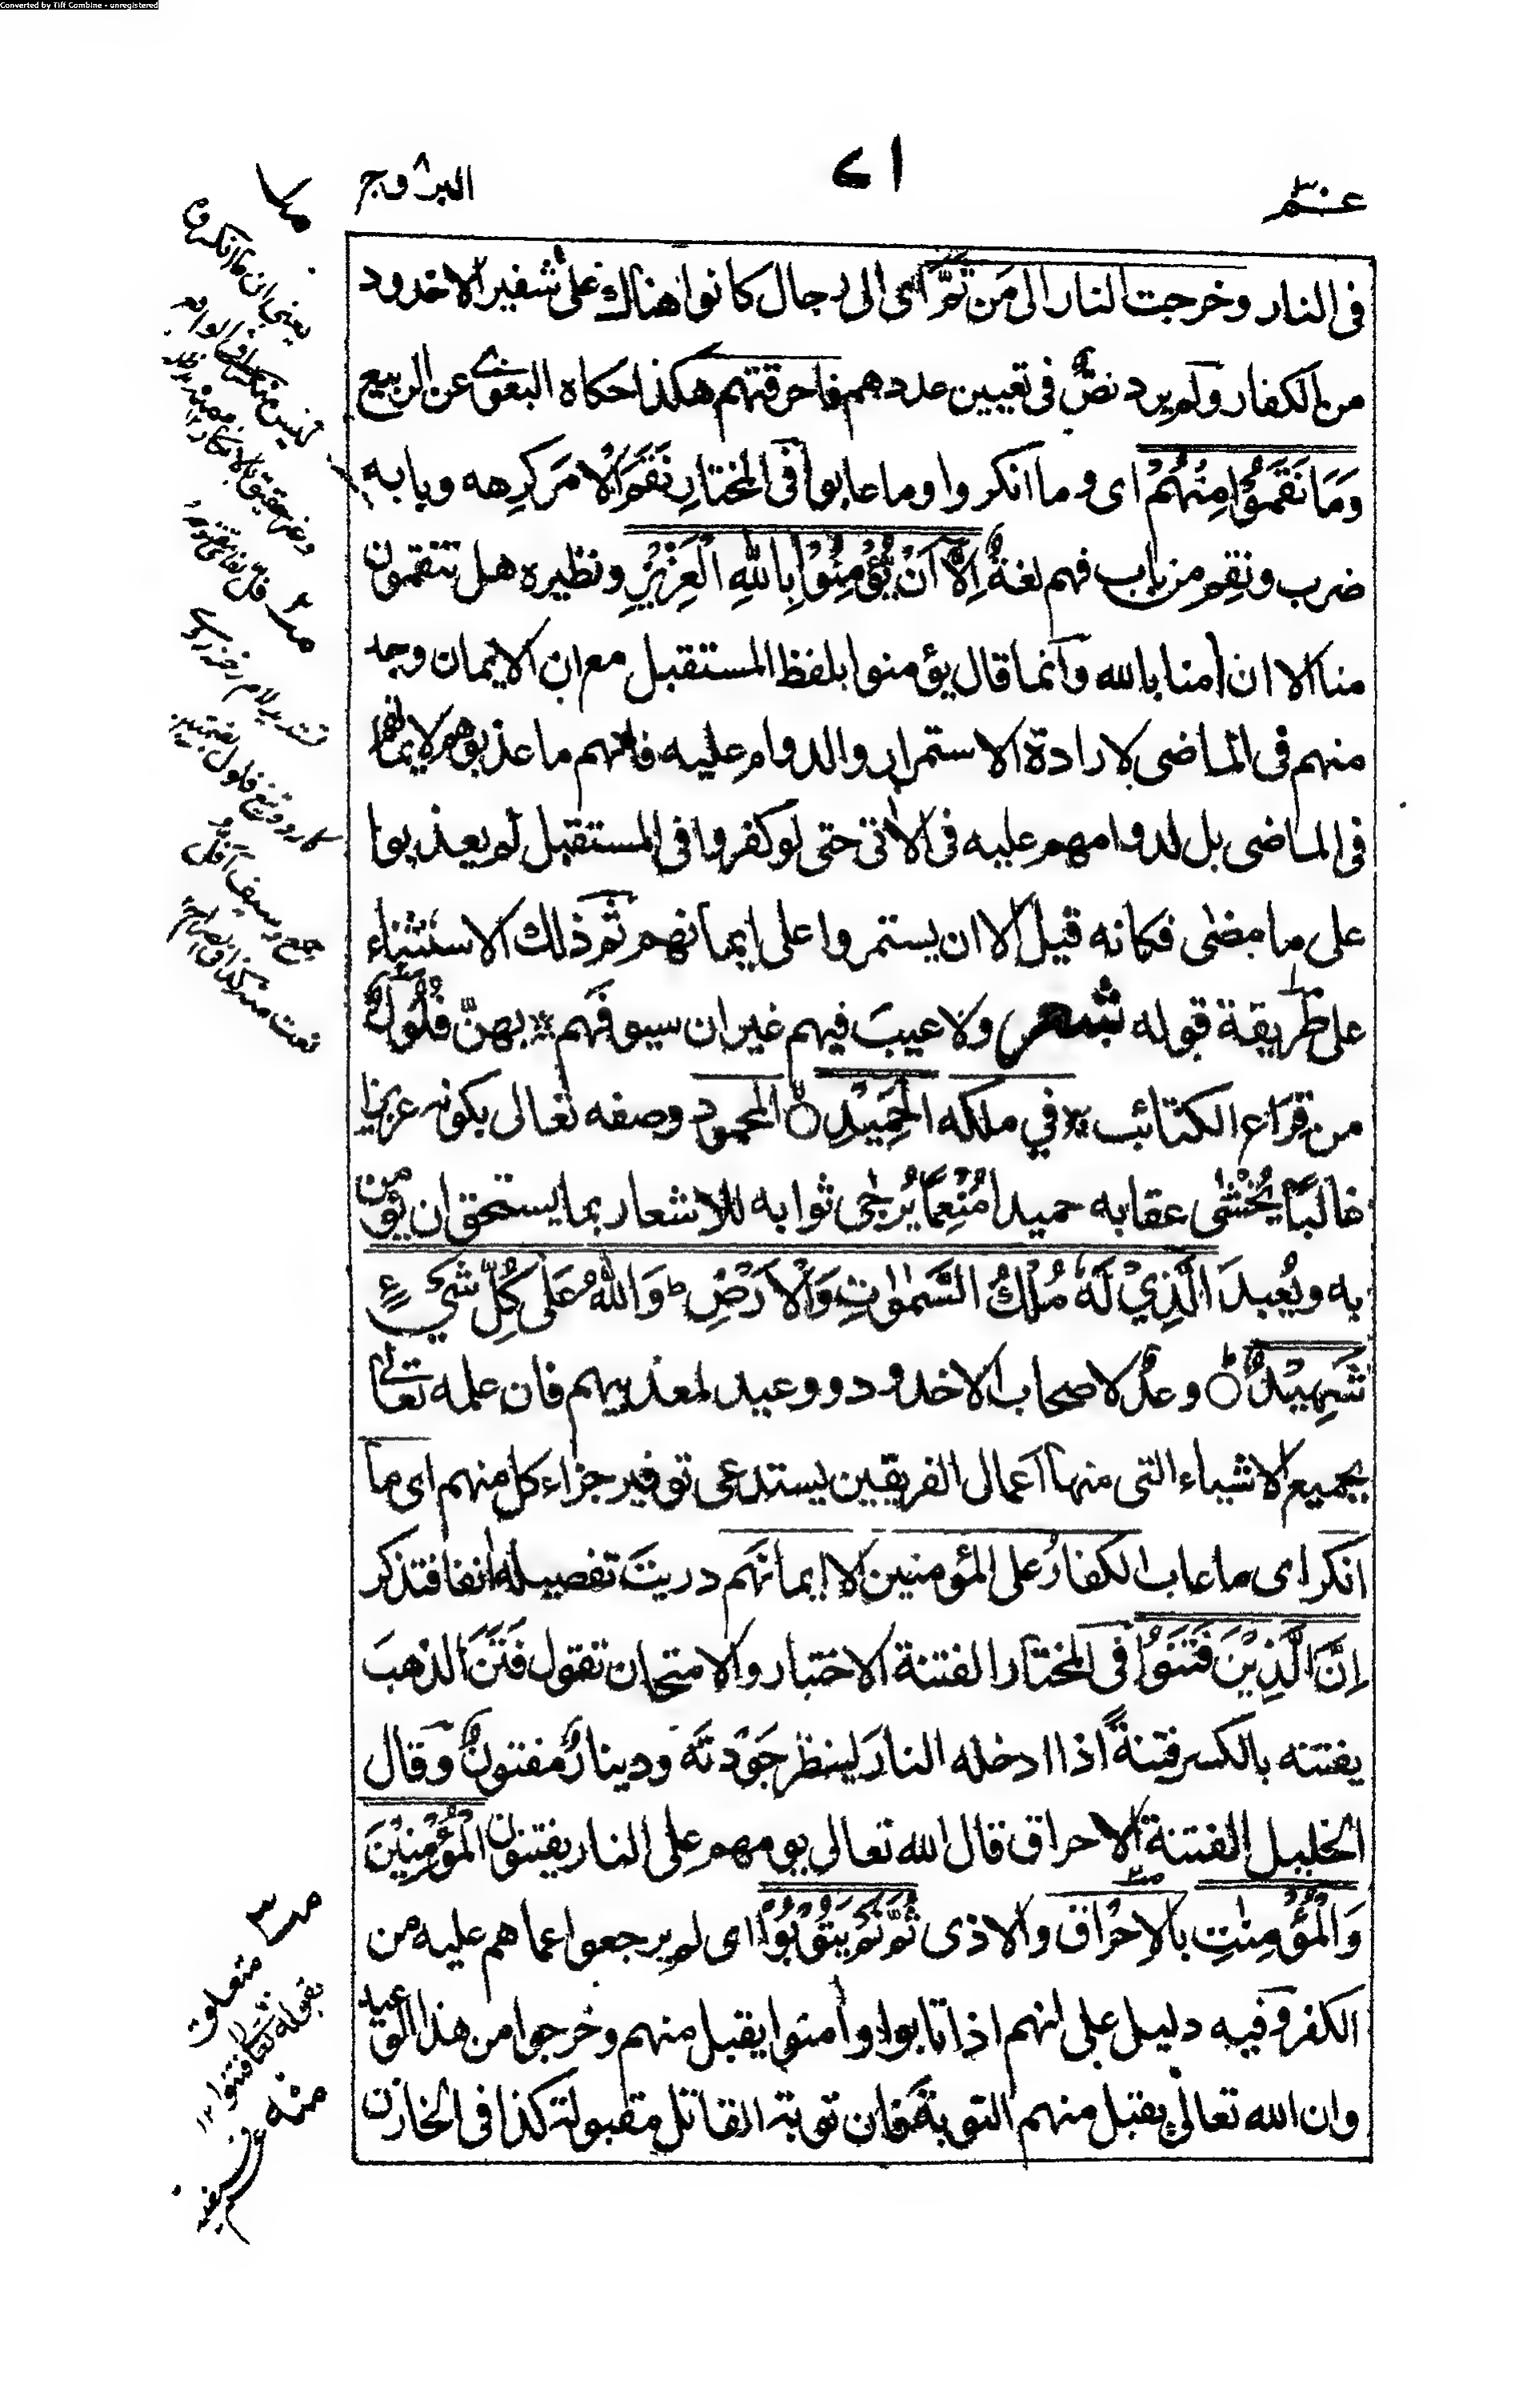 Converted by Tiff Combine - unregistered
عم
٧١
البروج
فى النار وخرجت النار الى مَن ثَمَّ اى الى رجال كانوا هناك على شفير الاخدود
من الكفار ولم يرد نصٌّ فى تعيين عددهم فاحرقتهم هكذا حكاه البغوى عن الربيع
وَمَا نَقَمُوْا مِنْهُمْ اى وما انكروا وما عابوا فى المختار نَقَمَ الامرَ كرِهه وبابه
ضرب ونَقِم من باب فهم لغةٌ اِلَّا اَنْ يُّؤْمِنُوْا بِاللّٰهِ الْعَزِيْزِ ونظيره هل تنقمون
منا الا ان اٰمنا بالله وانما قال يؤمنوا بلفظ المستقبل مع ان الايمان وجد
منهم فى الماضى لارادة الاستمرار والدوام عليه فانهم ما عذبوهم لايمانهم
فى الماضى بل لدوامهم عليه فى الاٰتى حتى لو كفروا فى المستقبل لم يعذبوا
على ما مضٰى فكانه قيل الا ان يستمروا على ايمانهم ثم ذلك الاستثناء
على طريقة قوله شعر ولا عيبَ فيهم غير ان سيوفَهم ؞ بهنّ فُلُولٌ
من قِرَاع الكتائب ؞ في ملكه الْحَمِيْدِ ۙ المحمود وصفه تعالى بكونه عزيزا
غالبًا يُخْشٰى عقابه حميدا مُنْعِمًا يُرجٰى ثوابه للاشعار بما يستحق ان يؤمن
به ويُعبدَ الَّذِيْ لَهٗ مُلْكُ السَّمٰوٰتِ وَالْاَرْضِ ؕ وَاللّٰهُ عَلٰى كُلِّ شَيْءٍ
شَهِيْدٌ ؕ وعدٌ لاصحاب الاخدود ووعيد لمعذبيهم فان علمه تعالى
بجميع الاشياء التى منها اعمال الفريقين يستدعى توفير جزاء كل منهم اى ما
انكر اى ما عاب الكفارُ على المؤمنين الا ايمانَهم دريتَ تفصيله اٰنفا فتذكر
اِنَّ الَّذِيْنَ فَتَنُوْا فى المختار الفتنة الاختبار والامتحان تقول فَتَنَ الذهبَ
يفتنه بالكسر فِتنةً اذا ادخله النارَ لينظر جَوْدتَه ودينارٌ مفتونٌ وقال
الخليل الفتنة الاحراق قال الله تعالى يوم هم على النار يفتنون الْمُؤْمِنِيْنَ
وَالْمُؤْمِنٰتِ بالاِحْرَاق والاذى ثُمَّ لَمْ يَتُوْبُوْا اى لم يرجعوا عما هم عليه من
الكفر وفيه دليل على انهم اذا تابوا واٰمنوا يقبل منهم وخرجوا من هذا الوعيد
وان الله تعالى يقبل منهم التوبة فان توبة القاتل مقبولة كذا فى الخازن
متعلق
بقوله تعالى فتنوا ١٢
منه